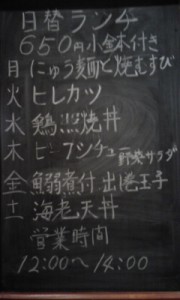 日替ランチ
650円小鉢付き
月 にゅう麺と焼むすび
火 ヒレカツ
水 鶏照焼丼
木 ビーフシチュー 野菜サラダ
金 鰯煮付 出し巻玉子
土 海老天丼
営業時間
12:00~14:00